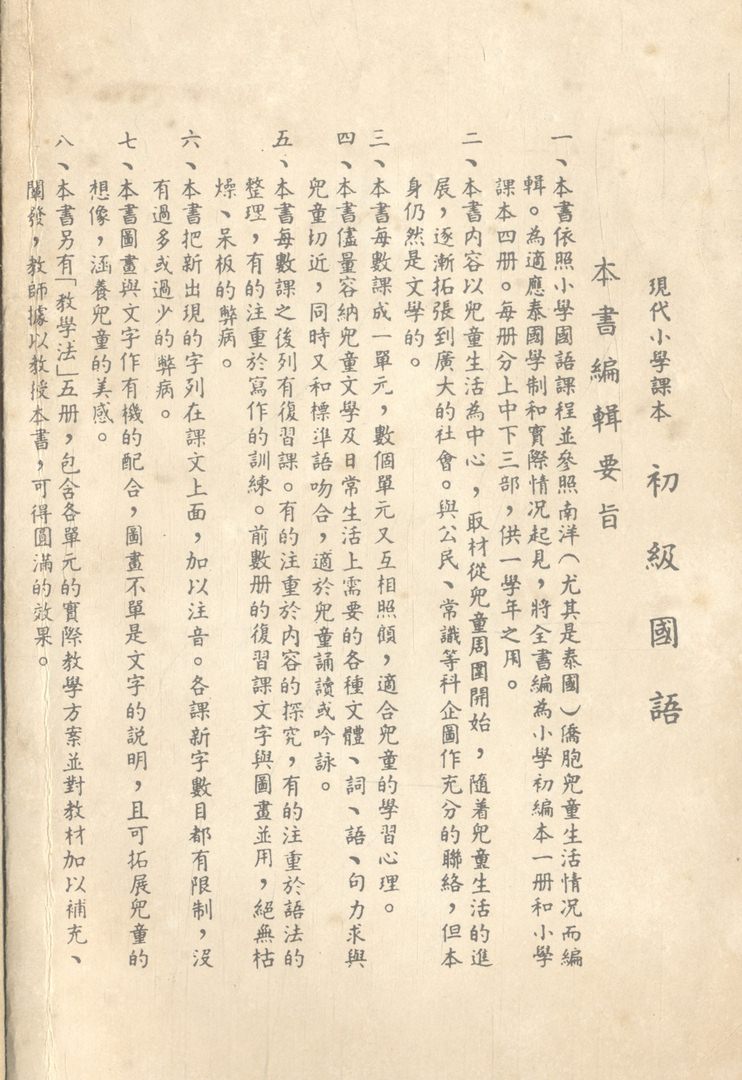 現代小學課本 初級國語
本書編輯要旨
一、本書依照小學國語課程並參照南洋（尤其是泰國）僑胞兒童生活情況而編
輯。為適應泰國學制和實際情况起見，將全書編為小學初編本一册和小學
課本四册。每册分上中下三部，供一學年之用。
二、本書内容以兒童生活為中心，取材從兒童周圍開始，隨着兒童生活的進
展，逐漸拓張到廣大的社會。與公民、常識等科企圖作充分的聯絡，但本
身仍然是文學的。
三、本書每數課成一單元，數個單元又互相照顧，適合兒童的學習心理。
四、本書儘量容納兒童文學及日常生活上需要的各種文體、詞、語、句力求與
兒童切近，同時又和標準語吻合，適於兒童誦讀或吟詠。
五、本書每數課之後列有復習課。有的注重於内容的探究，有的注重於語法的
整理，有的注重於寫作的訓練。前數册的復習課文字與圖畫並用，絕無枯
燥、呆板的弊病。
六、本書把新出現的字列在課文上面，加以注音。各課新字數目都有限制，沒
有過多或過少的弊病。
七、本書圖畫與文字作有機的配合，圖畫不單是文字的説明，且可拓展兒童的
想像，涵養兒童的美感。
八、本書另有「教學法」五册，包含各單元的實際教學方案並對教材加以補充、
闡發，教師據以教授本書，可得圓滿的效果。